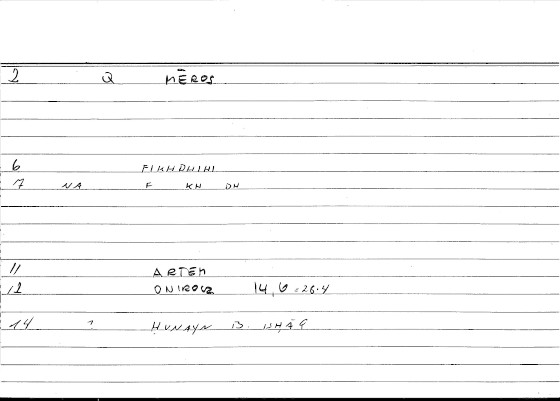 2 Q MĒROS
6 FIKHDHIHI
7 NA F KH DH
11 ARTEM
12 ONIROCR 14,6 = 26.4
14 ? ḤUNAYN B. ISḤĀQ